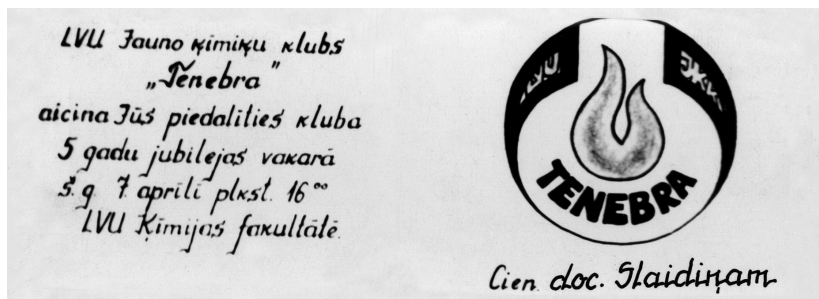 LVU Jauno ķīmiķu klubs
„Tenebra”
aicina Jūs piedalīties kluba
5 gadu jubilejas vakarā
š.g. 7. aprīlī plkst. 16⁰⁰
LVU Ķīmijas fakultātē.
LVU JĶK
TENEBRA
Cien. doc. Slaidiņam